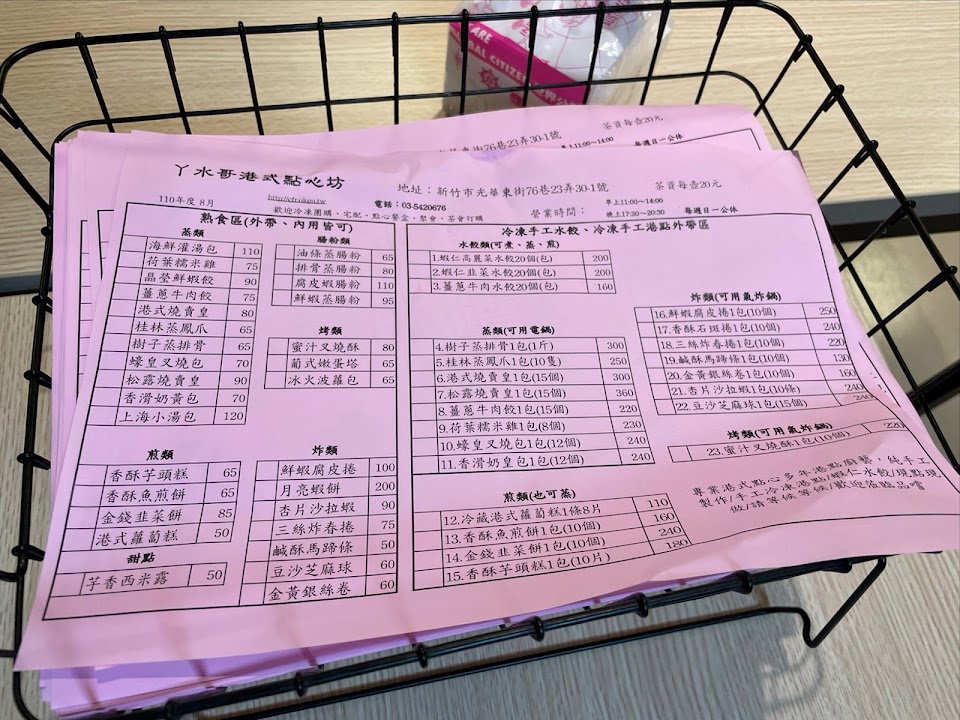 ARE
BAL CITIZEN
茶資每壺20元
東街76巷23弄30-1號
早上11:00~14:00
每週日一公休
丫水哥港式點心坊
地址：新竹市光華東街76巷23弄30-1號
茶資每壺20元
110年度 8月
電話：03-5420676
早上11:00~14:00
歡迎冷凍團購、宅配、點心餐盒、聚會、茶會訂購
營業時間：
晚上17:30~20:30
每週日一公休
熟食區(外帶、內用皆可)
蒸類
海鮮灌湯包 110
荷葉糯米雞 75
晶瑩鮮蝦餃 90
薑蔥牛肉餃 75
港式燒賣皇 80
桂林蒸鳳爪 65
樹子蒸排骨 65
蠔皇叉燒包 70
松露燒賣皇 90
香滑奶黃包 70
上海小湯包 120
腸粉類
油條蒸腸粉 65
排骨蒸腸粉 80
腐皮蝦腸粉 110
鮮蝦蒸腸粉 95
烤類
蜜汁叉燒酥 80
葡式嫩蛋塔 65
冰火波羅包 65
煎類
香酥芋頭糕 65
香酥魚煎餅 65
金錢韭菜餅 85
港式蘿蔔糕 50
甜點
芋香西米露 50
炸類
鮮蝦腐皮捲 100
月亮蝦餅 200
杏片沙拉蝦 90
三絲炸春捲 75
鹹酥馬蹄條 50
豆沙芝麻球 60
金黃銀絲卷 60
冷凍手工水餃、冷凍手工港點外帶區
水餃類(可煮、蒸、煎)
1.蝦仁高麗菜水餃20個(包) 200
2.蝦仁韭菜水餃20個(包) 200
3.薑蔥牛肉水餃20個(包) 160
蒸類(可用電鍋)
4.樹子蒸排骨1包(1斤) 300
5.桂林蒸鳳爪1包(10隻) 250
6.港式燒賣皇1包(15個) 300
7.松露燒賣皇1包(15個) 360
8.薑蔥牛肉餃1包(15個) 220
9.荷葉糯米雞1包(8個) 230
10.蠔皇叉燒包1包(12個) 240
11.香滑奶皇包1包(12個) 240
煎類(也可蒸)
12.冷藏港式蘿蔔糕1條8片 110
13.香酥魚煎餅1包(10個) 160
14.金錢韭菜餅1包(10個) 240
15.香酥芋頭糕1包(10片) 180
炸類(可用氣炸鍋)
16.鮮蝦腐皮捲1包(10個) 250
17.香酥石斑捲1包(10個) 240
18.三絲炸春捲1包(10個) 220
19.鹹酥馬蹄條1包(10個) 130
20.金黃銀絲卷1包(10個) 160
21.杏片沙拉蝦1包(10條) 240
22.豆沙芝麻球1包(10個) 240
烤類(可用氣炸鍋)
23.蜜汁叉燒酥1包(10個) 220
專業港式點心多年港點廚藝，純手工
製作/手工冷凍港點/蝦仁水餃/現點現
做/請等候等候/歡迎蒞臨品嚐